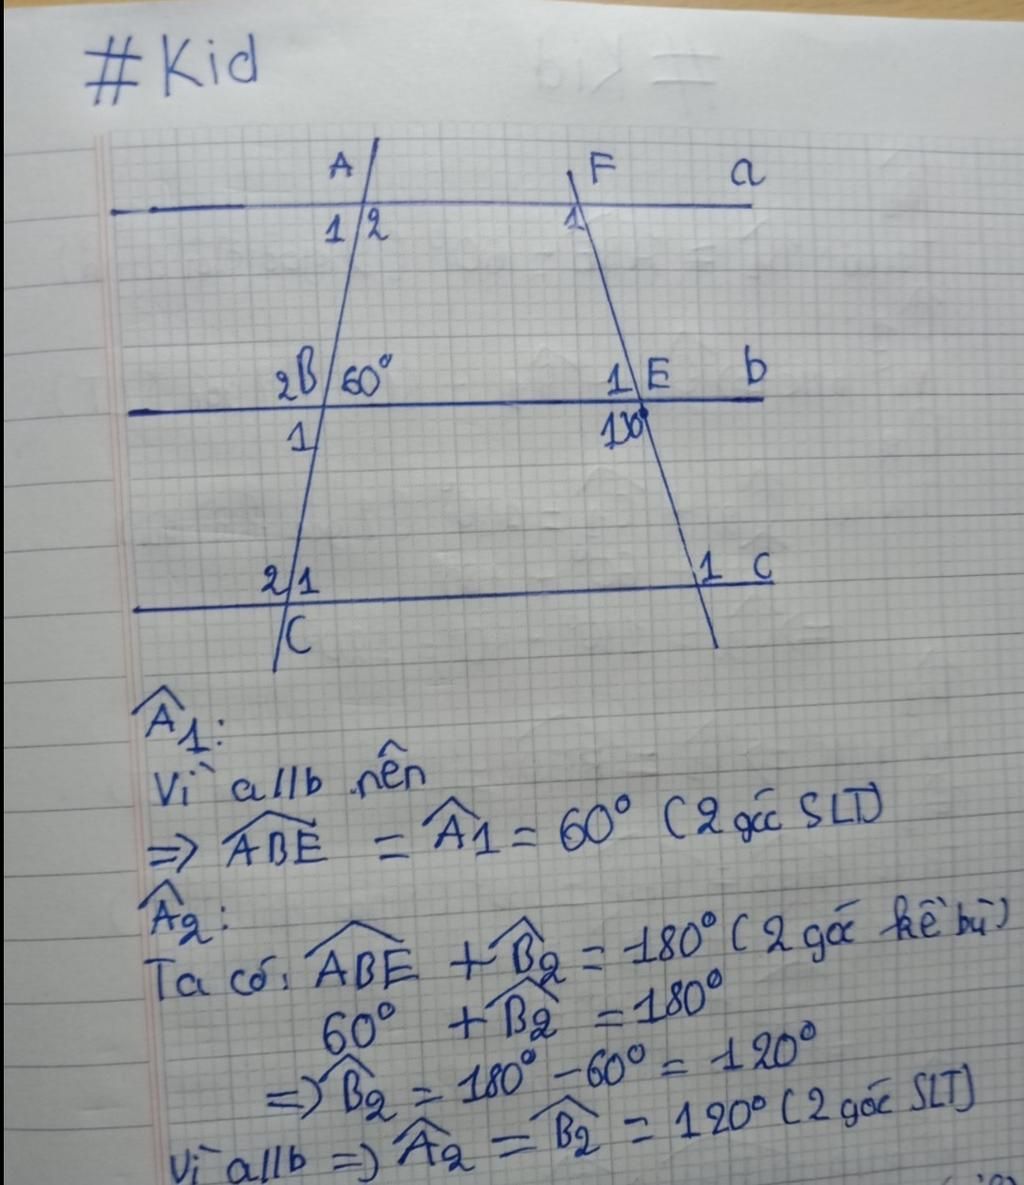 #Kid
A F a
1 2 1
2 B 60° 1 E b
1
2 1 1 c
C
Â1:
Vì a//b nên
=> ABE = Â1 = 60° (2 góc SLT)
Â2:
Ta có: ABE + B̂2 = 180° (2 góc kề bù)
60° + B̂2 = 180°
=> B̂2 = 180° - 60° = 120°
Vì a//b => Â2 = B̂2 = 120° (2 góc SLT)